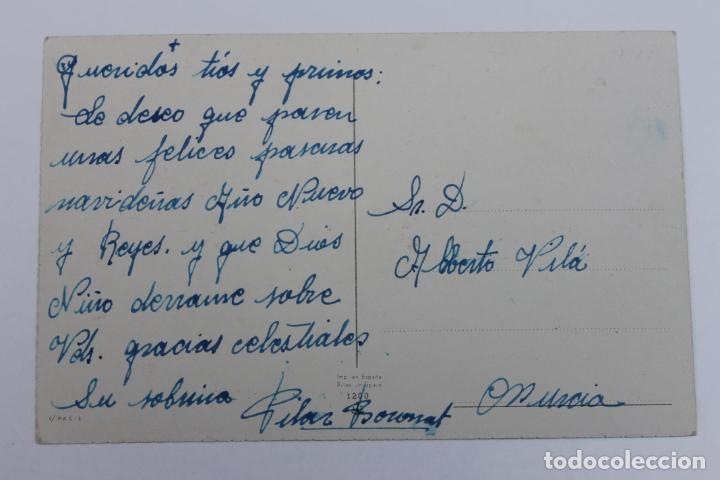 +
Queridos tíos y primos:
Le deseo que pasen
unas felices pascuas
navideñas Año Nuevo
y Reyes. y que Dios
Niño derrame sobre
Vds. gracias celestiales
Su sobrina
Pilar Boronat
Sr. D.
Alberto Vilá
Murcia
Imp. en España
Printed in Spain
1200
todocoleccion.net